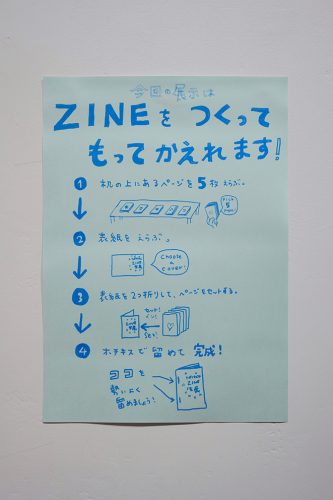 今回の展示は
ZINEを つくって
もって かえれます!
1 机の上にあるページを5枚えらぶ。
PICK 5 PAGES
2 表紙をえらぶ。
Choose a cover!
3 表紙を2つ折りして、ページをセットする。
セットイン!
Set!
4 ホチキスで 留めて 完成!
ココを
勢いよく
留めましょう!